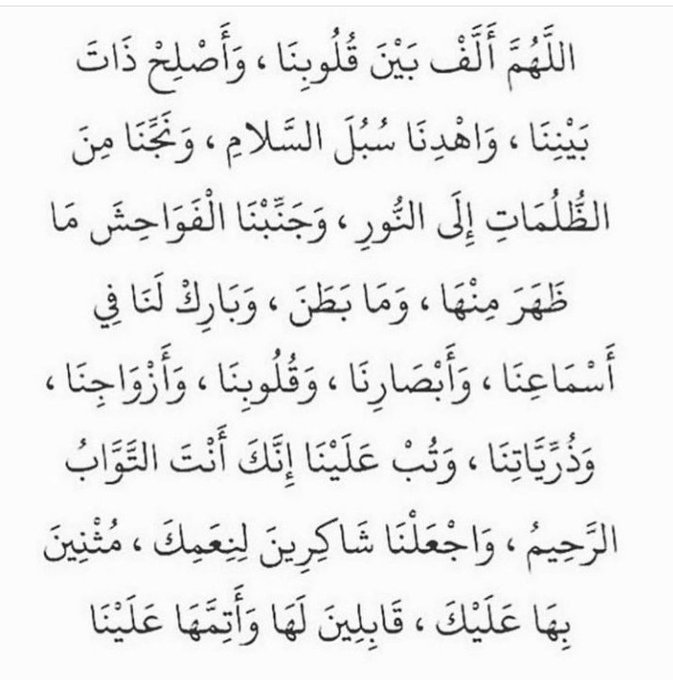 اللَّهُمَّ أَلَّفْ بَيْنَ قُلُوبِنَا ، وَأَصْلِحْ ذَاتَ
بَيْنِنَا ، وَاهْدِنَا سُبُلَ السَّلامِ ، وَنَجِّنَا مِنَ
الظُّلُمَاتِ إِلَى النُّورِ ، وَجَنِّبْنَا الْفَوَاحِشَ مَا
ظَهَرَ مِنْهَا ، وَمَا بَطَنَ ، وَبَارِكْ لَنَا فِي
أَسْمَاعِنَا ، وَأَبْصَارِنَا ، وَقُلُوبِنَا ، وَأَزْوَاجِنَا ،
وَذُرِّيَّاتِنَا ، وَتُبْ عَلَيْنَا إِنَّكَ أَنْتَ التَّوَّابُ
الرَّحِيمُ ، وَاجْعَلْنَا شَاكِرِينَ لِنِعَمِكَ ، مُثْنِينَ
بِهَا عَلَيْكَ ، قَابِلِينَ لَهَا وَأَتِمَّهَا عَلَيْنَا